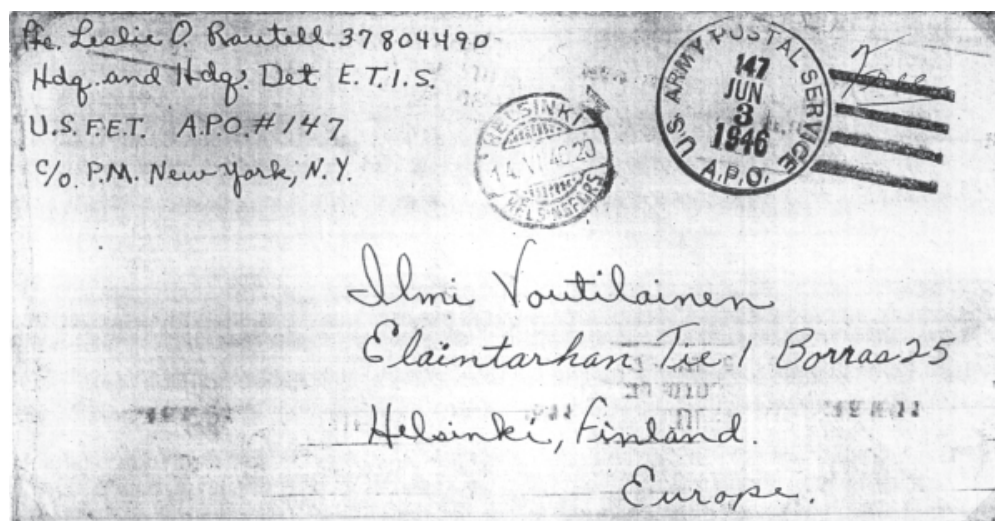 Pfc. Leslie O. Rautell 37804490
Hdq. and Hdq. Det E.T.I.S.
U.S.F.E.T. A.P.O. #147
c/o P.M. New York, N.Y.
HELSINKI
14.VI.46.20
HELSINGFORS
U.S. ARMY POSTAL SERVICE
147
JUN
3
1946
A.P.O.
Free
Ilmi Voutilainen
Elaintarhan Tie 1 Borras 25
Helsinki, Finland.
Europe.